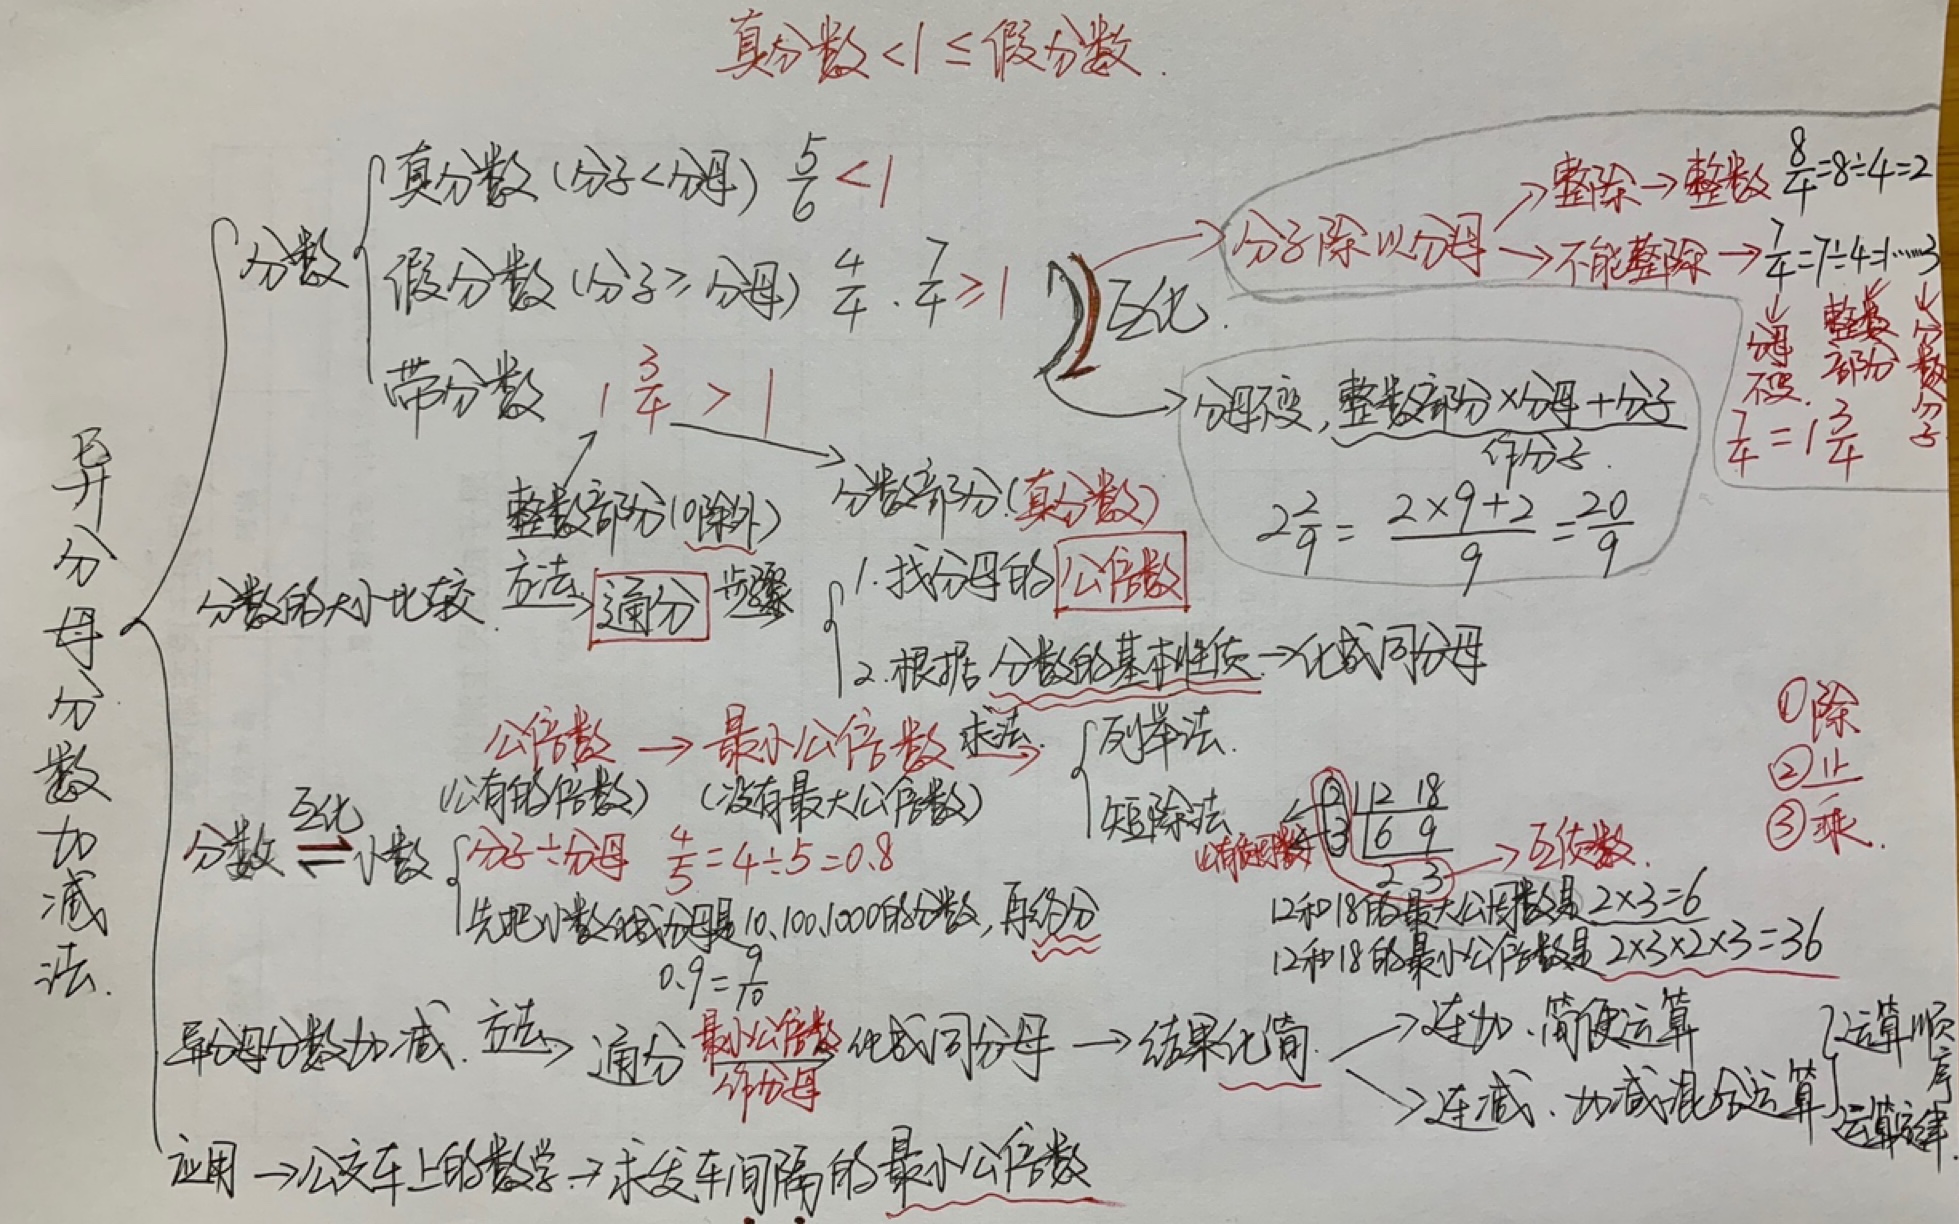 真分数<1≤假分数.
异分母分数加减法.
分数
真分数(分子<分母) 5/6 <1
假分数(分子≥分母) 4/4 . 7/4 ≥1
带分数 1 3/4 > 1
整数部分(0除外)
分数部分(真分数)
互化.
→分子除以分母
→整除→整数 8/4=8÷4=2
→不能整除→7/4=7÷4=1……3
↓分母不变.
整数部分
↓分数分子
7/4=1 3/4
→分母不变,整数部分×分母+分子
作分子.
2 2/9 = (2×9+2)/9 = 20/9
分数的大小比较 方法→ 通分 步骤
1.找分母的公倍数
2.根据分数的基本性质→化成同分母
公倍数→最小公倍数 求法→
(公有的倍数) (没有最大公倍数)
列举法.
短除法
2 12 18
3 6 9
2 3→互质数.
①除
②止
③乘.
12和18的最大公因数是2×3=6
12和18的最小公倍数是2×3×2×3=36
分数⇌小数
互化
分子÷分母 4/5=4÷5=0.8
先把小数化成分母是10、100、1000的分数,再约分
0.9=9/10
异分母分数加减. 方法→通分 最小公倍数作分母 化成同分母→结果化简.
→连加、简便运算
→连减、加减混合运算
运算顺序
运算定律.
应用→公交车上的数学→求发车间隔的最小公倍数